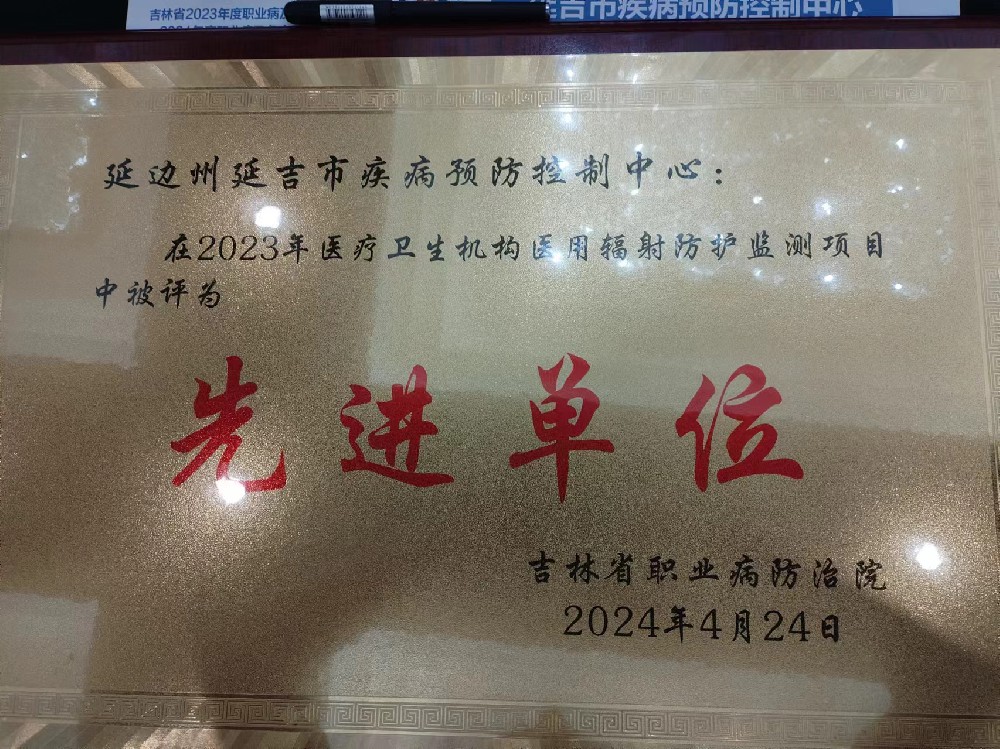 吉林省2023年度职业病
延吉市疾病预防控制中心
延边州延吉市疾病预防控制中心：
在2023年医疗卫生机构医用辐射防护监测项目
中被评为
先进单位
吉林省职业病防治院
2024年4月24日